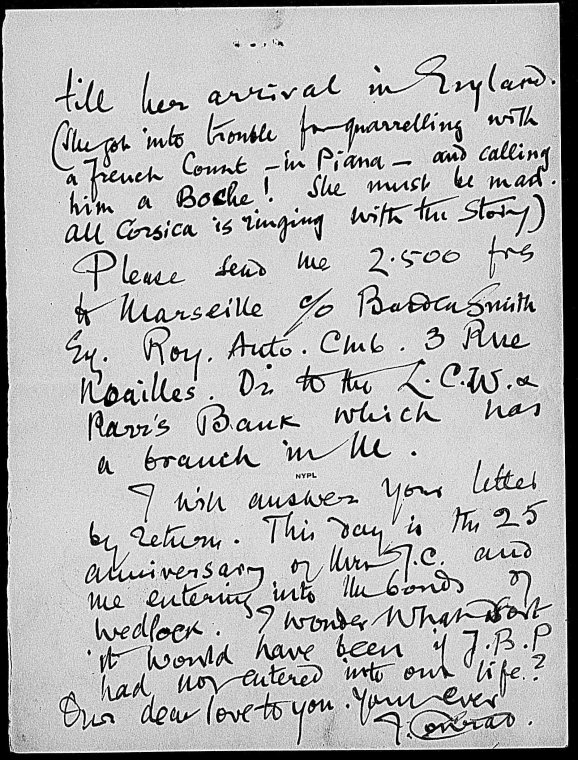 till her arrival in England.
(She got into trouble for quarrelling with
a French Count – in Piana – and calling
him a Boche! She must be mad.
All Corsica is ringing with the Story)
Please send me 2.500 frs
to Marseille c/o Barden Smith
Esq. Roy. Auto. Club. 3 Rue
Noailles. Or to the L.C.W. &
Parr's Bank which has
a branch in M.
NYPL
I will answer your letter
by return. This day is the 25
anniversary of Mrs J.C. and
me entering into the bonds of
wedlock. I wonder What sort
it would have been if J.B.P
had not entered into our life?
Our dear love to you. Yours ever
J. Conrad.